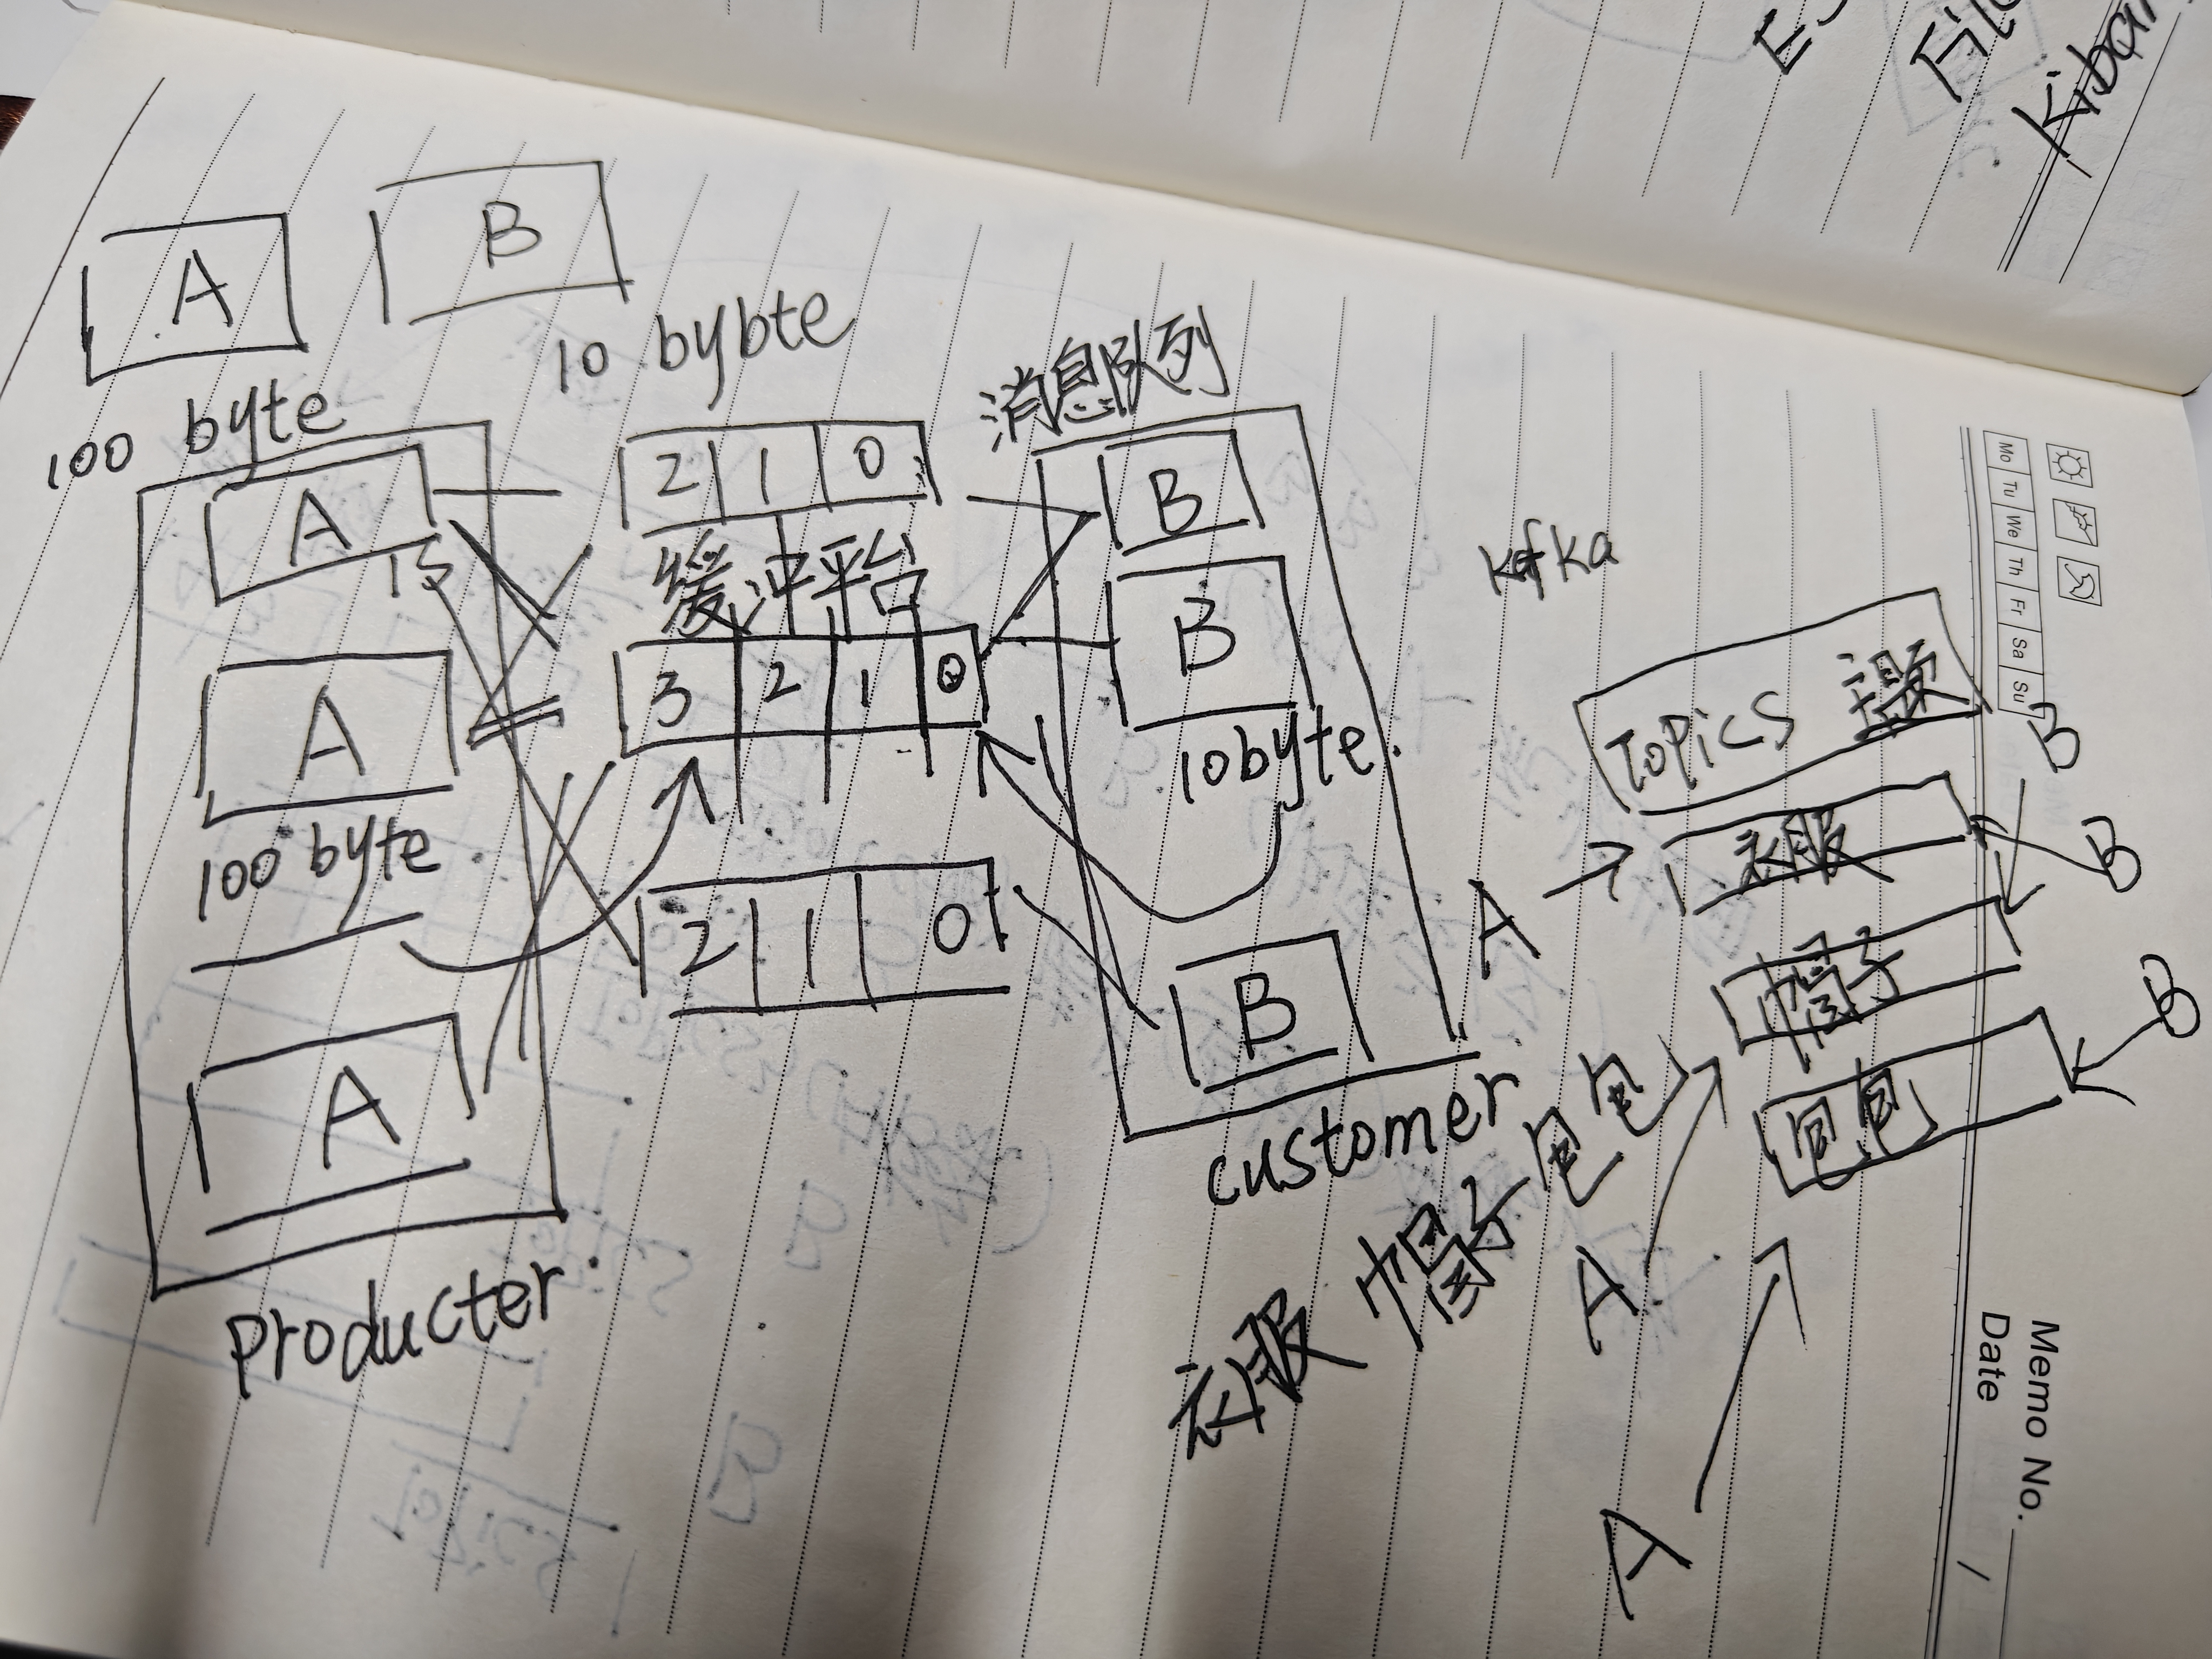 A
B
100 byte
10 bybte
消息队列
A
1s
2 1 0
B
缓冲平台
A
3 2 1 0
B
100 byte
10byte.
2 1 0
A
B
producter
customer
衣服 帽子 包包
kafka
Topics 主题
A
衣服
B
A
帽子
B
A
包包
B
Kibana
Mo Tu We Th Fr Sa Su
Memo No.
Date /